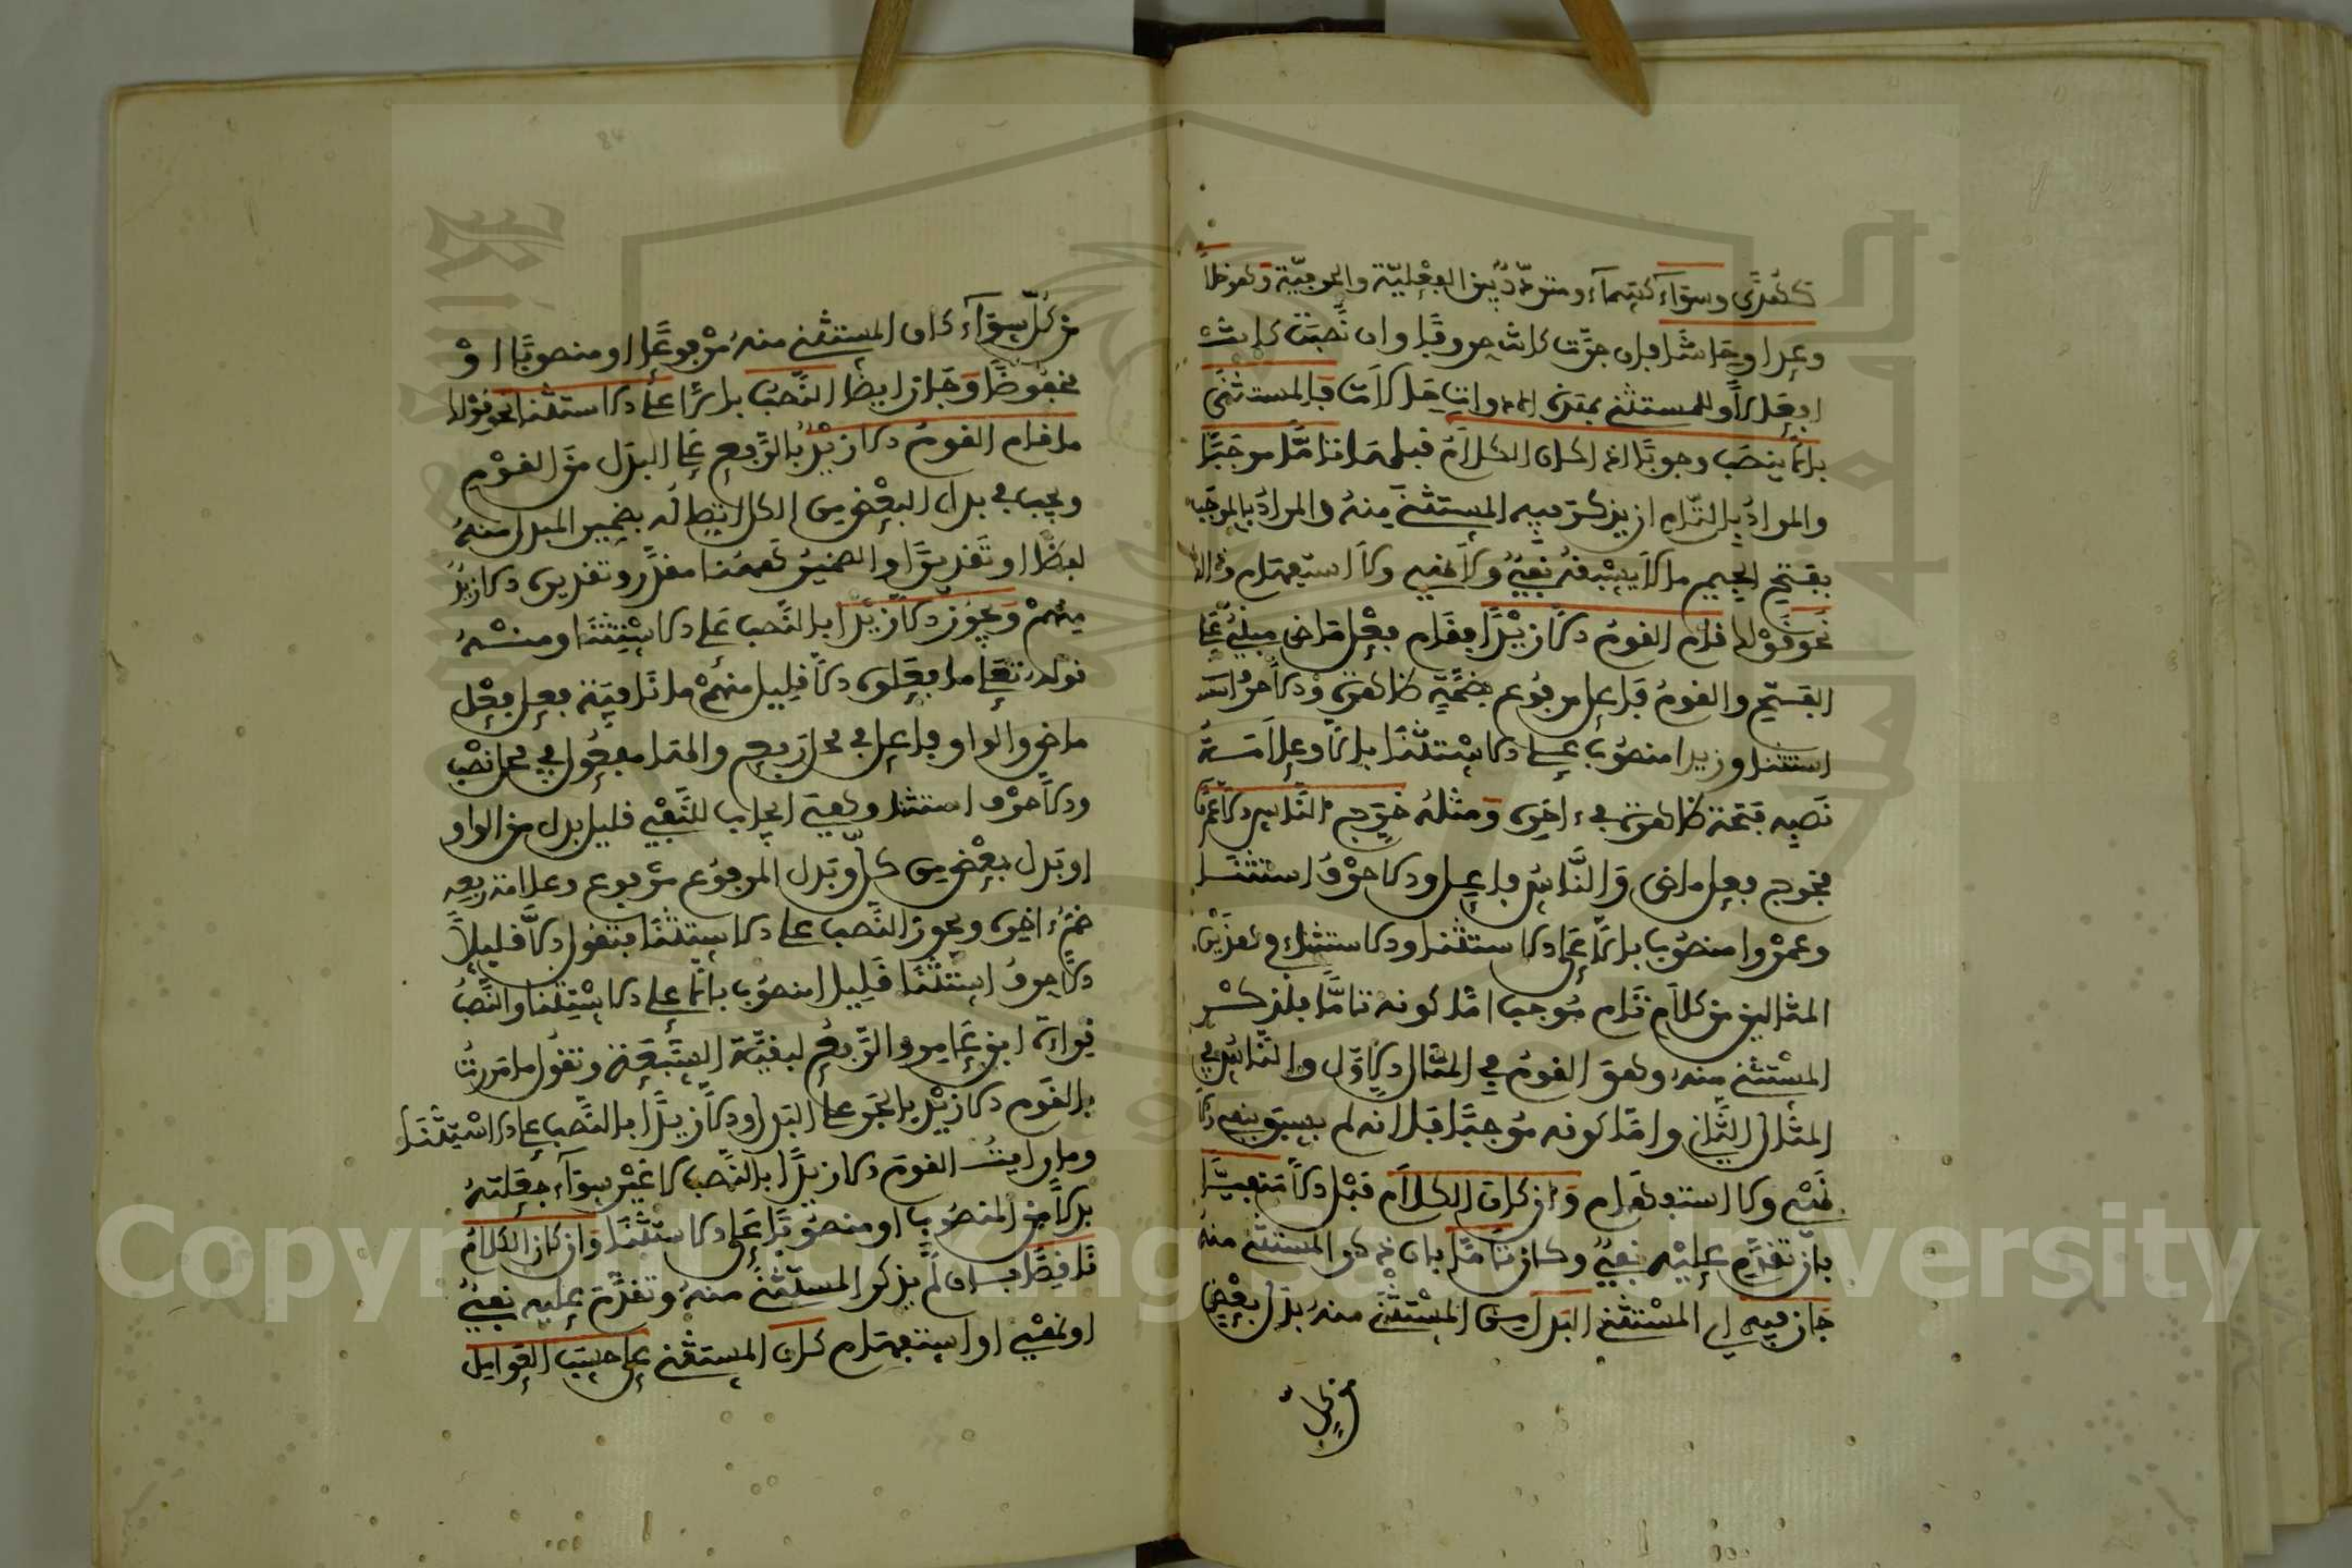 كهُدًى وسوَآء كسَمآء ومتردّد بين الفِعْليّة والحرفيّة وَهو خلا
وعدا وحاشا فإن جرّت كانت حروفًا وان نَصبَت كانت
افعَالاً وللمستثنى بهذه الادوات حالات فَالمستثنى
بالا ينصَب وجوبًا اذا كان الكلامُ قبلهَا تامًّا موجَبًا
والمرادُ بالتام ان يذكر فيه المستثنىَ مِنهُ والمرادُ بالموجَب
بفتح الجيم ما لا يسْبقهُ نفيٌ ولا نهي ولا استفهام
نحو قوْلك قام القومُ الا زيْدًا فقام فعْل ماض مبنيٌّ علَى
الفتح والقومُ فاعل مرفُوع بضمّة ظاهرة والا حرْف
استثنا وزيدا منصُوب على الاسْتثنا بالا وعلامَة
نَصبه فتحَة ظاهرة في ءاخره وَمثلهُ خرَج النّاس الا عَمْرًا
فخرج فعل ماض وَالنَّاسُ فاعل والا حرْفُ استثنَا
وعمرْوا منصُوب بالا عَلى الاستثنا والاستثناء في هذَيْن
المثالين من كلام تَام مُوجب امّا كونه تامًّا فلذكْر
المسْتثنى منه وهو القومُ في المثَال الاوَّل والنّاسُ في
المثال الثّاني وامَّا كونه مُوجبًا فلانه لم يسبق بنفي ولا
نهْي ولا استفهام وَان كان الكلاَم قبْل الا مَنفيًّا
بان تقدَّم عليْه نفيٌ وكان تامًّا بان ذكر المستثنى منه
جَاز فيه اي المسْتثنى البَدل مِن المسْتثنَى منهُ بدَل بعْض
من كل
من كُلّ سوَآء كان المستثنى منهُ مرْفوعًا او منصوبًا اوْ
مخفُوضًا وَجَاز ايضا النَّصبُ بالا علَى الاستثنا نحو قوْلك
ما قام القومُ الا زيْدٌ بالرَّفع عَلى البدَل منَ القوْم
ويجب في بدل البعْض من الكل اتصاله بضمير المبدل منهُ
لفظًا او تَقديرًا والضميرُ هُنا مقدَّر وتقديره الا زيْدٌ
مِنهُمْ وَيجُوز الا زيْدًا بالنَّصب عَلى الاسْتِثنَا ومنْهُ
قوله تعَلى ما فعَلوه الا قليل منهُمْ ما نَافيَة فعل فِعْل
ماضٍ والواو فاعل في محَل رَفع والهَا مفعُول في محل نصْب
والا حرْف استثنا وهيَ ايجاب للنَّفْي قليل بدل من الواو
او بدَل بعْض من كلّ وبَدل المرفوُع مرْفوع وعلامَة رفعه
ضمّ ءاخره ويجوز النَّصب على الاسْتثنَا فتقول الا قليلاً
الا حرف استثنَا قَليلا منصُوب بالا علَى الاسْتِثنا والنَّصْبُ
قراءَة ابن عَامر والرَّفعُ لبقيّة السَّبْعَة وتقُول ما مَررتُ
بالقَوم الا زيْدٍ بالجَر على البَدل والا زيدًا بالنَّصب على الاسْتثنَا
وما رايتُ القومَ الا زيدًا بالنّصب لا غيْر سوَآء جعَلتهُ
بدلاً من المنصُوب او منصُوبًا عَلى الاستثنَا وَان كان الكلامُ
نَاقصًا بان لَّم يذكر المستثنَى منهُ وتقدَّم عليه نفيٌ
او نهْي او استفهَام كان المستثنى على حسَب العَوامل